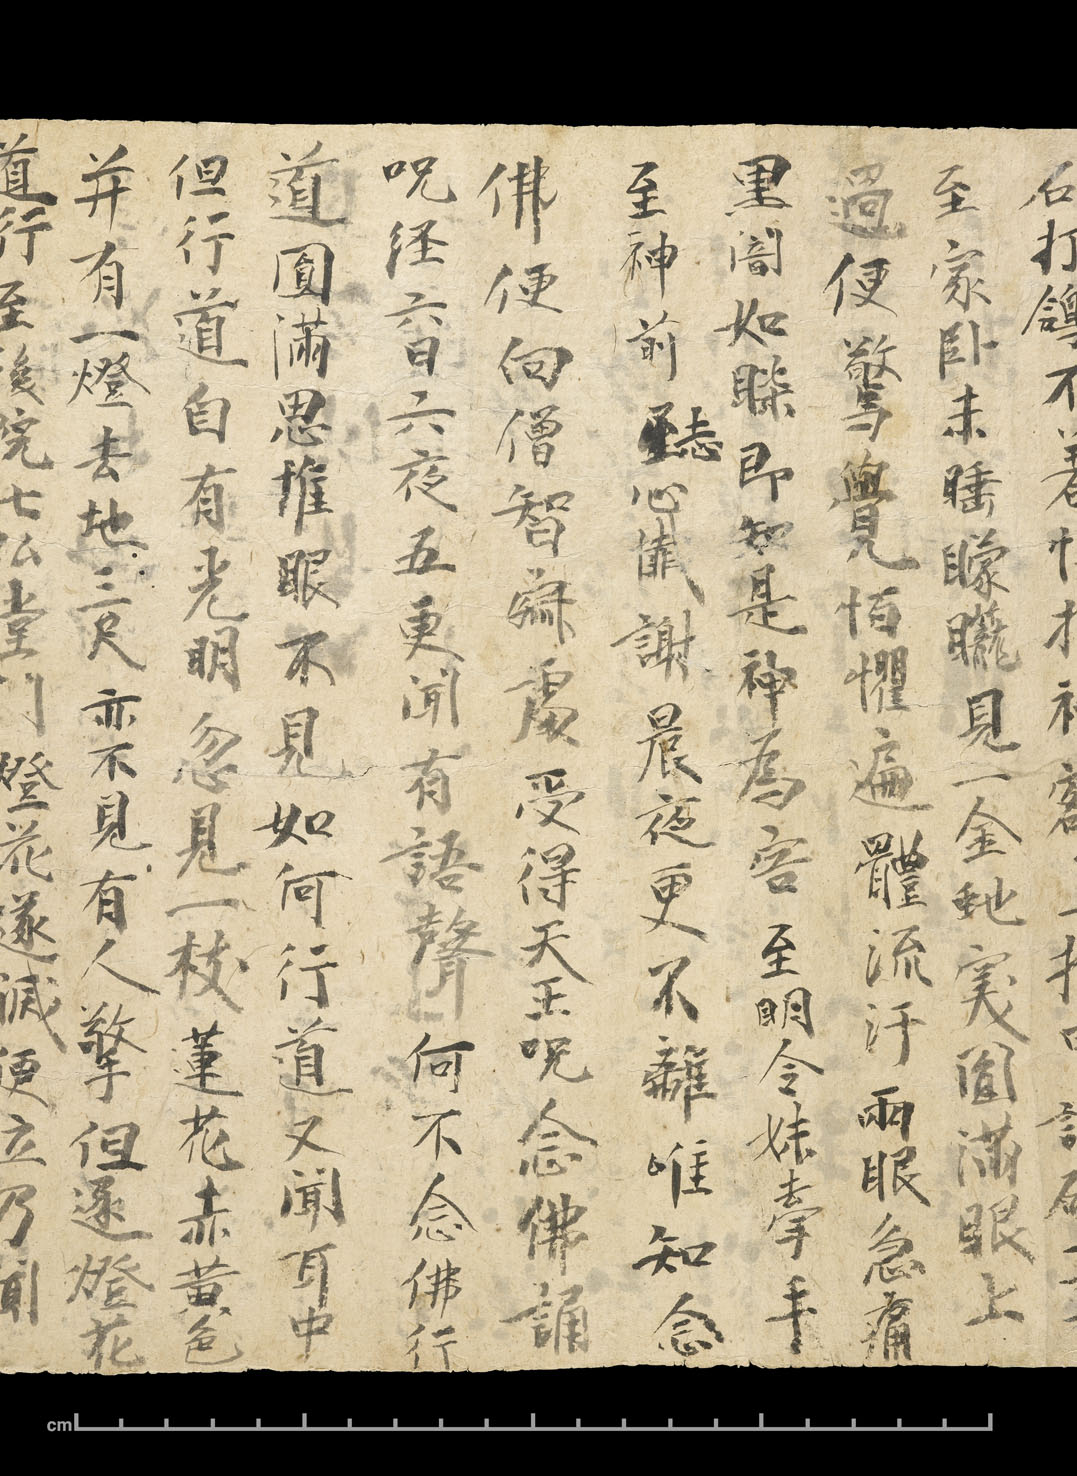 石打鴿不著
至家卧未睡矇矓見一金虵寬闊滿眼上
過便驚覺怕懼遍體流汗兩眼急痛
黑闇如漆即知是神為害至明令妹牽手
至神前志心懺謝晨夜更不離唯知念
佛便向僧智寂處受得天王呪念佛誦
呪経六日六夜五更聞有語聲何不念佛行
道圓滿思惟眼不見如何行道又聞耳中
但行道自有光明忽見一枝蓮花赤黃色
并有一燈去地三尺亦不見有人擎但逐燈花
道行至後院七仏堂門燈花遂滅便立乃聞
cm